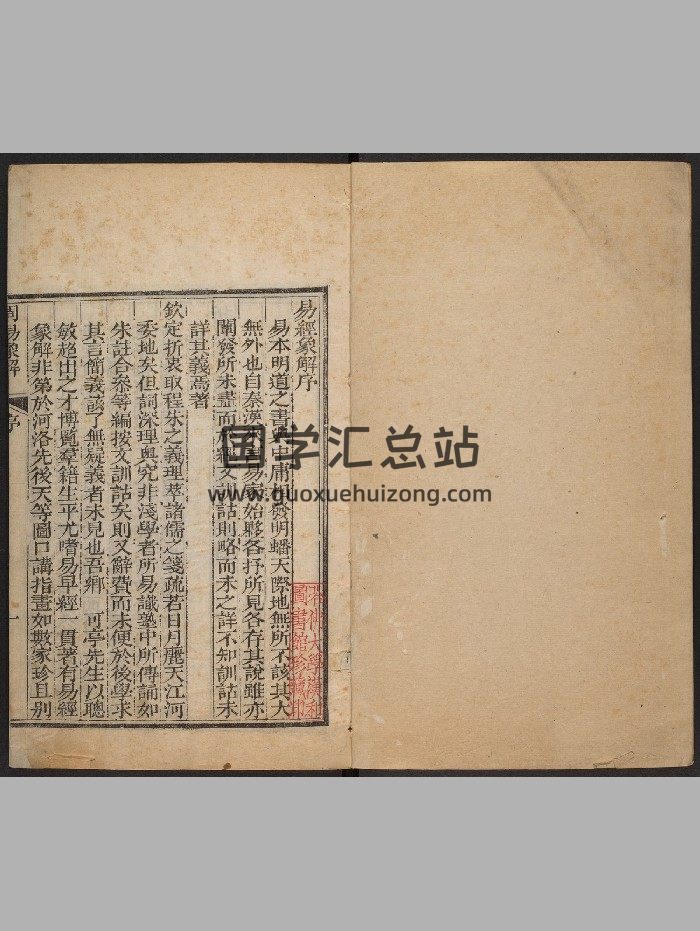 易經象解序
易本明道之書與中庸明發明蟠天際地無所不該其大
無外也自秦漢來言易家始夥各抒所見各存其說雖亦
闡發所未盡而於釋文訓詁則略而未之詳不知訓詁未
詳其義焉著
欽定折衷取程朱之義理萃諸儒之箋疏若日月麗天江河
委地矣但詞深理奧究非淺學者所易識塾中所傳誦如
朱註合參等編按文訓詁矣則又辭費而未便於後學求
其言簡義該了無疑義者未見也吾鄉 可亭先生以聰
敏超出之才博覽羣籍生平尤嗜易早經一貫著有易經
象解非第於河洛先後天等圖口講指畫如數家珍且別
周易象解 序 一
哈佛大學漢和
圖書館珍藏印
国学汇总站
www.guoxuehuizong.com